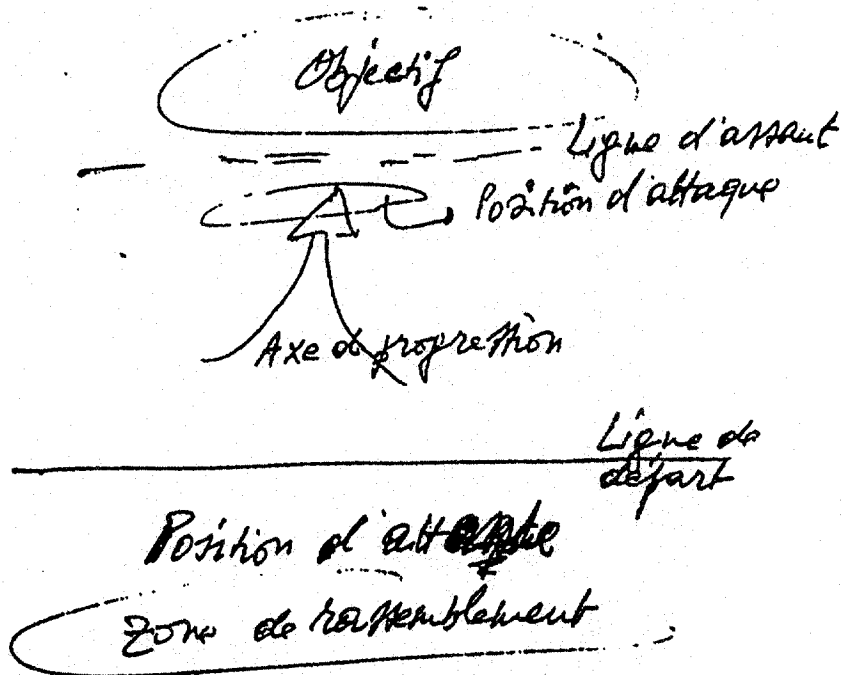 Objectif
Ligne d'assaut
Position d'attaque
Axe de progression
Ligne de
départ
Position d'attente
Zone de rassemblement